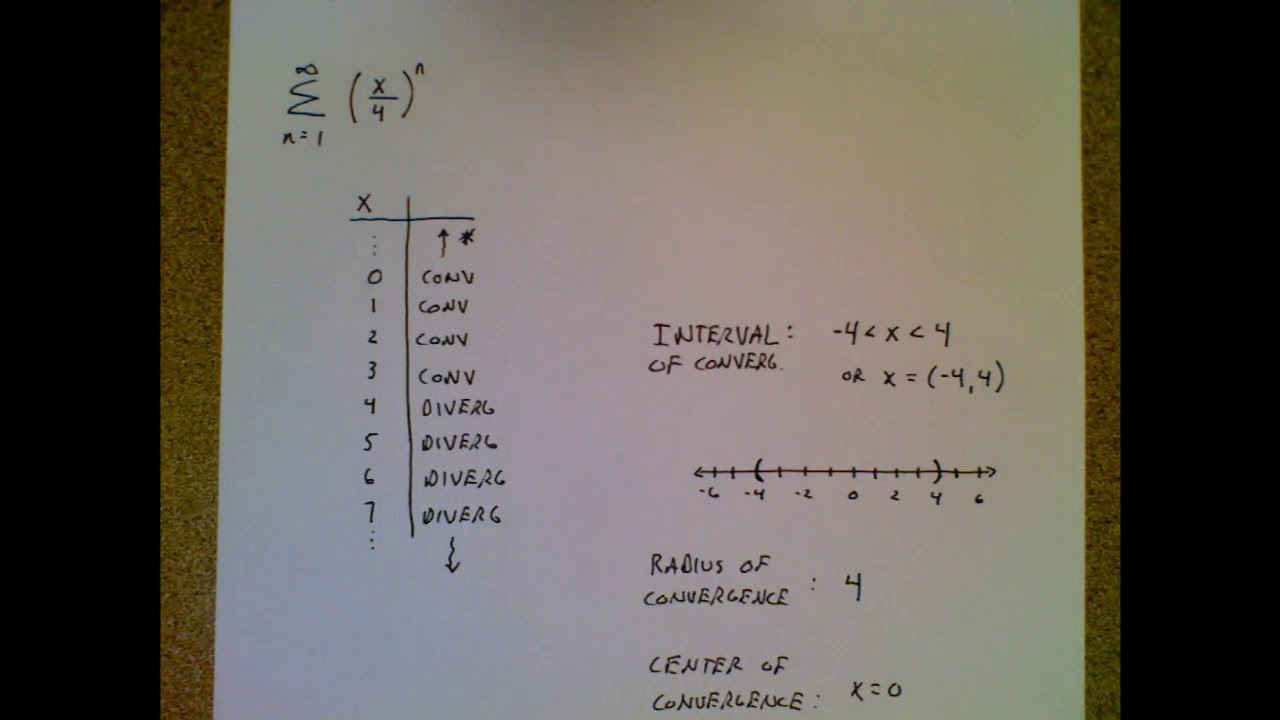 ∞
∑ (x/4)ⁿ
n=1
X
⋮ ↑ *
0 CONV
1 CONV
2 CONV
3 CONV
4 DIVERG
5 DIVERG
6 DIVERG
7 DIVERG
⋮
INTERVAL: -4 < x < 4
OF CONVERG. OR x = (-4,4)
-6 -4 -2 0 2 4 6
RADIUS OF
CONVERGENCE : 4
CENTER OF
CONVERGENCE: x=0